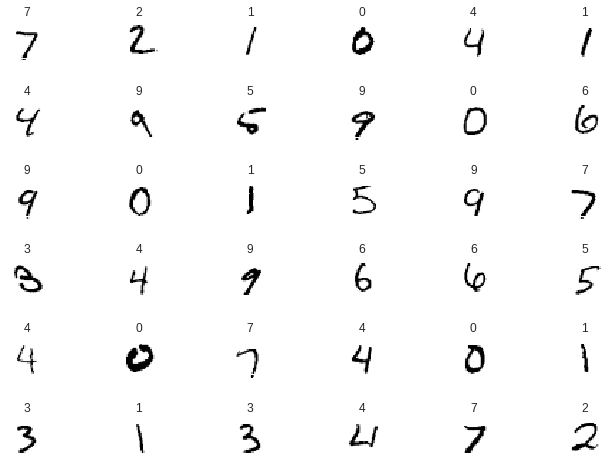 7 2 1 0 4 1
7 2 1 0 4 1
4 9 5 9 0 6
4 9 5 9 0 6
9 0 1 5 9 7
9 0 1 5 9 7
3 4 9 6 6 5
3 4 9 6 6 5
4 0 7 4 0 1
4 0 7 4 0 1
3 1 3 4 7 2
3 1 3 4 7 2